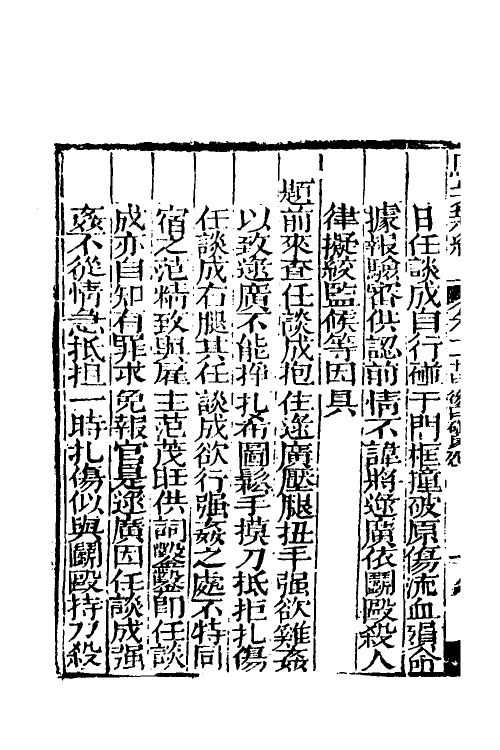 日任談成自行碰于門框撞破原傷流血殞命
據報驗審供認前情不諱將逯廣依鬬毆殺人
律擬絞監候等因具
題前來查任談成抱住逯廣壓腿扭手强欲雞姦
以致逯廣不能掙扎希圖鬆手摸刀抵拒扎傷
任談成右腿其任談成欲行强姦之處不特同
宿之范精致與雇主范茂旺供詞鑿鑿即任談
成亦自知有罪求免報官是逯廣因任談成强
姦不從情急抵拒一時扎傷似與鬬毆持刀殺